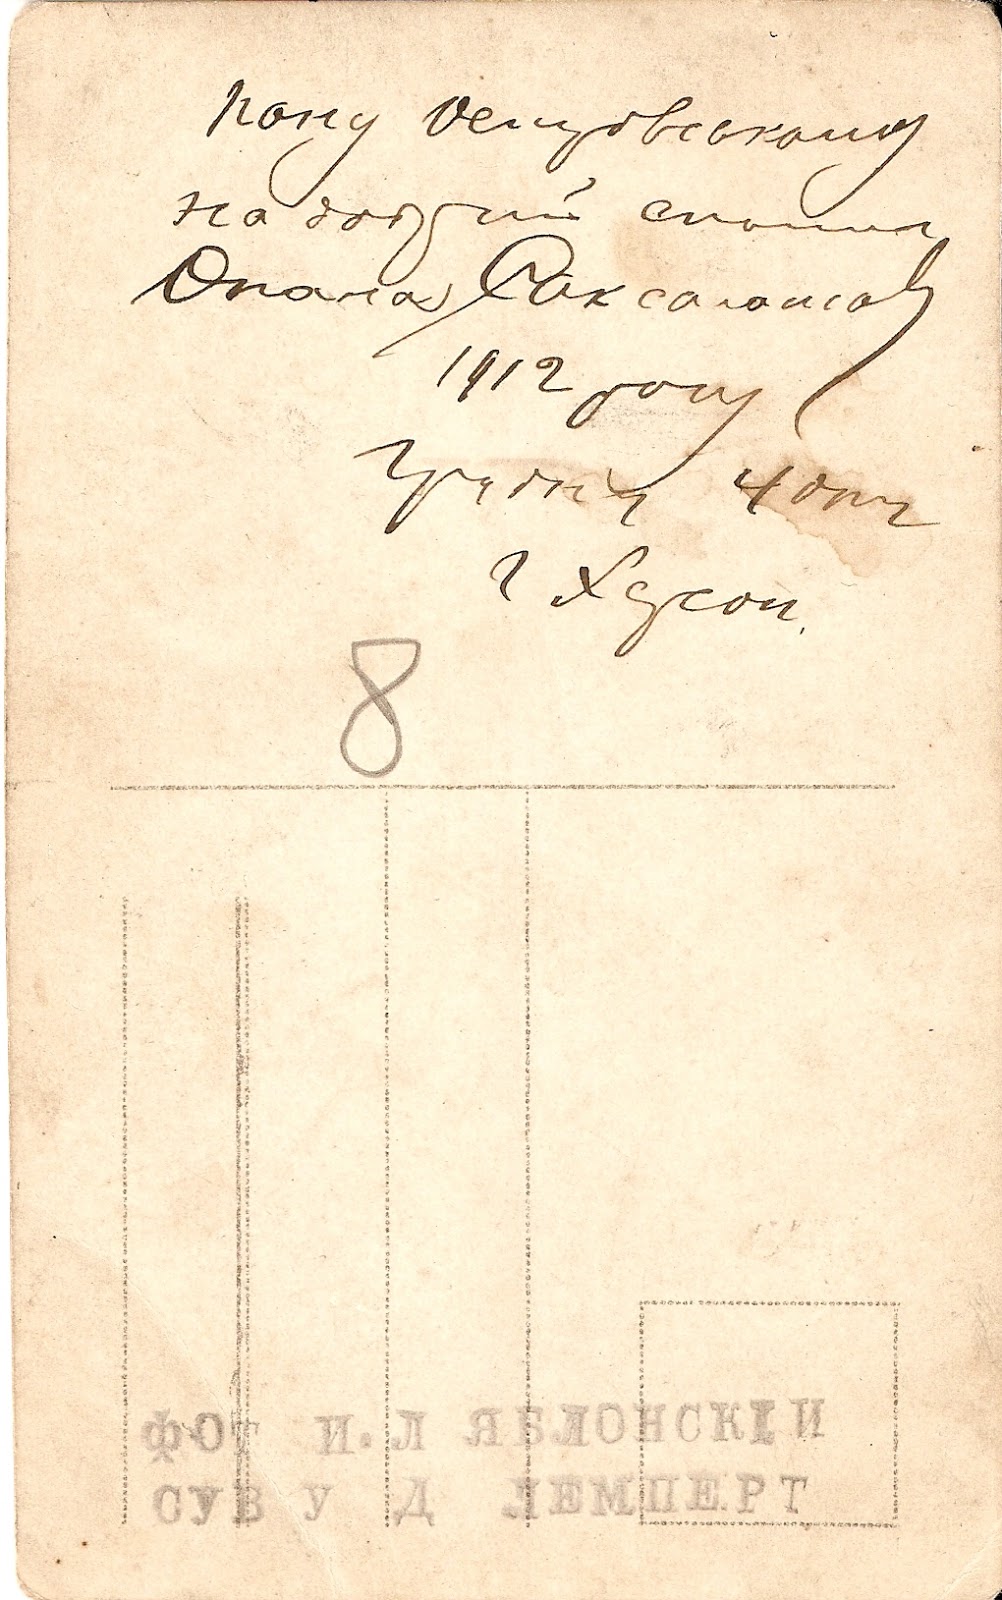 Пану
на добрий спомин
Опанас Саксаганський
1912 року
Грудня 4 дня
г Херсон.
8
ФОТ И. Л ЯБЛОНСКIИ
СУВ У Д ЛЕМПЕРТ